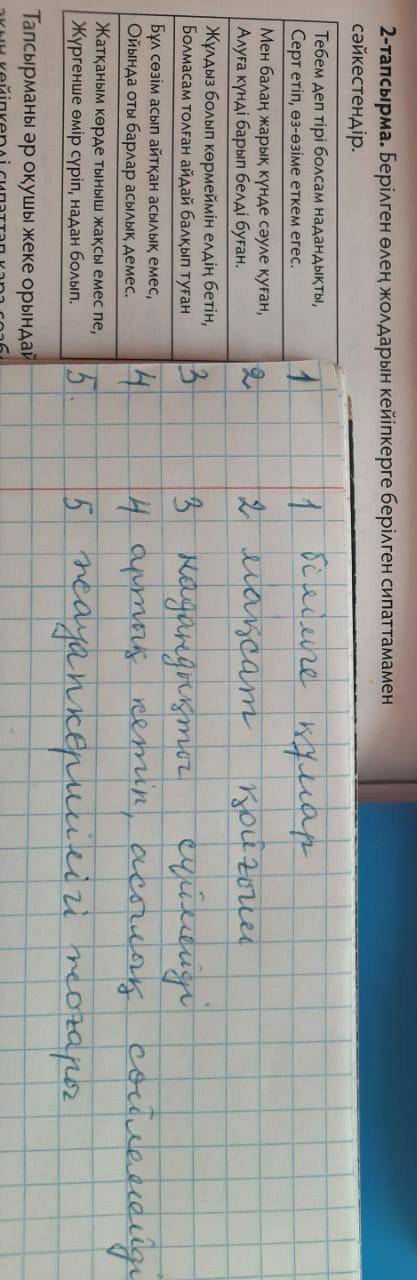 2-тапсырма. Берілген өлең жолдарын кейіпкерге берілген сипаттамамен
сәйкестендір.
Тебем деп тірі болсам надандықты,
Серт етіп, өз-өзіме еткем егес.
Мен балаң жарық күнде сәуле қуған,
Алуға күнді барып белді буған.
Жұлдыз болып көрмеймін елдің бетін,
Болмасам толған айдай балқып туған
Бұл сөзім асып айтқан асылық емес,
Ойында оты барлар асылық демес.
Жатқаным көрде тыныш жақсы емес пе,
Жүргенше өмір сүріп, надан болып.
Тапсырманы әр оқушы жеке орындай
1 1 білімге құмар
2 2 мақсат қойғыш
3 3 надандықты сүймейді
4 4 артық кетіп, асылық сөйлемейді
5. 5 жауапкершілігі жоғары